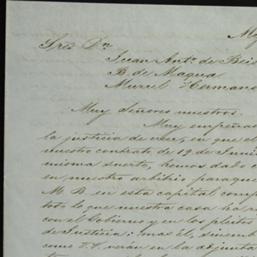 Sres Dn
Juan Anto. de Bei
B. de Magua
Muriel Herman
Muy Señores nuestros.
Muy empeña
la justicia de ver, en que el
nuestro contrato de 19 de Juni
misma suerte, hemos da
en nuestro arbitrio paraque
M B en esta capital comp
toto lo que nuestra casa ha
con el Gobierno y en los pleitos
de Justicia: mas él, sinemb
como V.V. verán en la adjunta